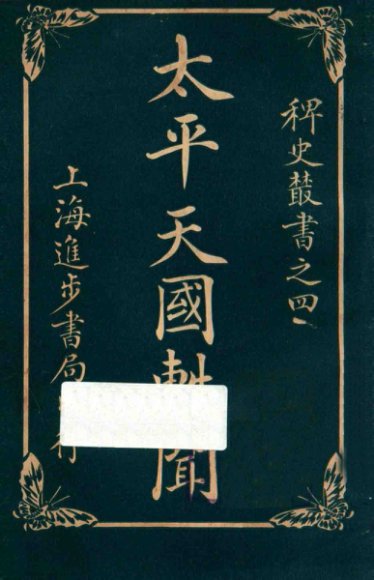 稗史叢書之四
太平天國軼聞
上海進步書局印行